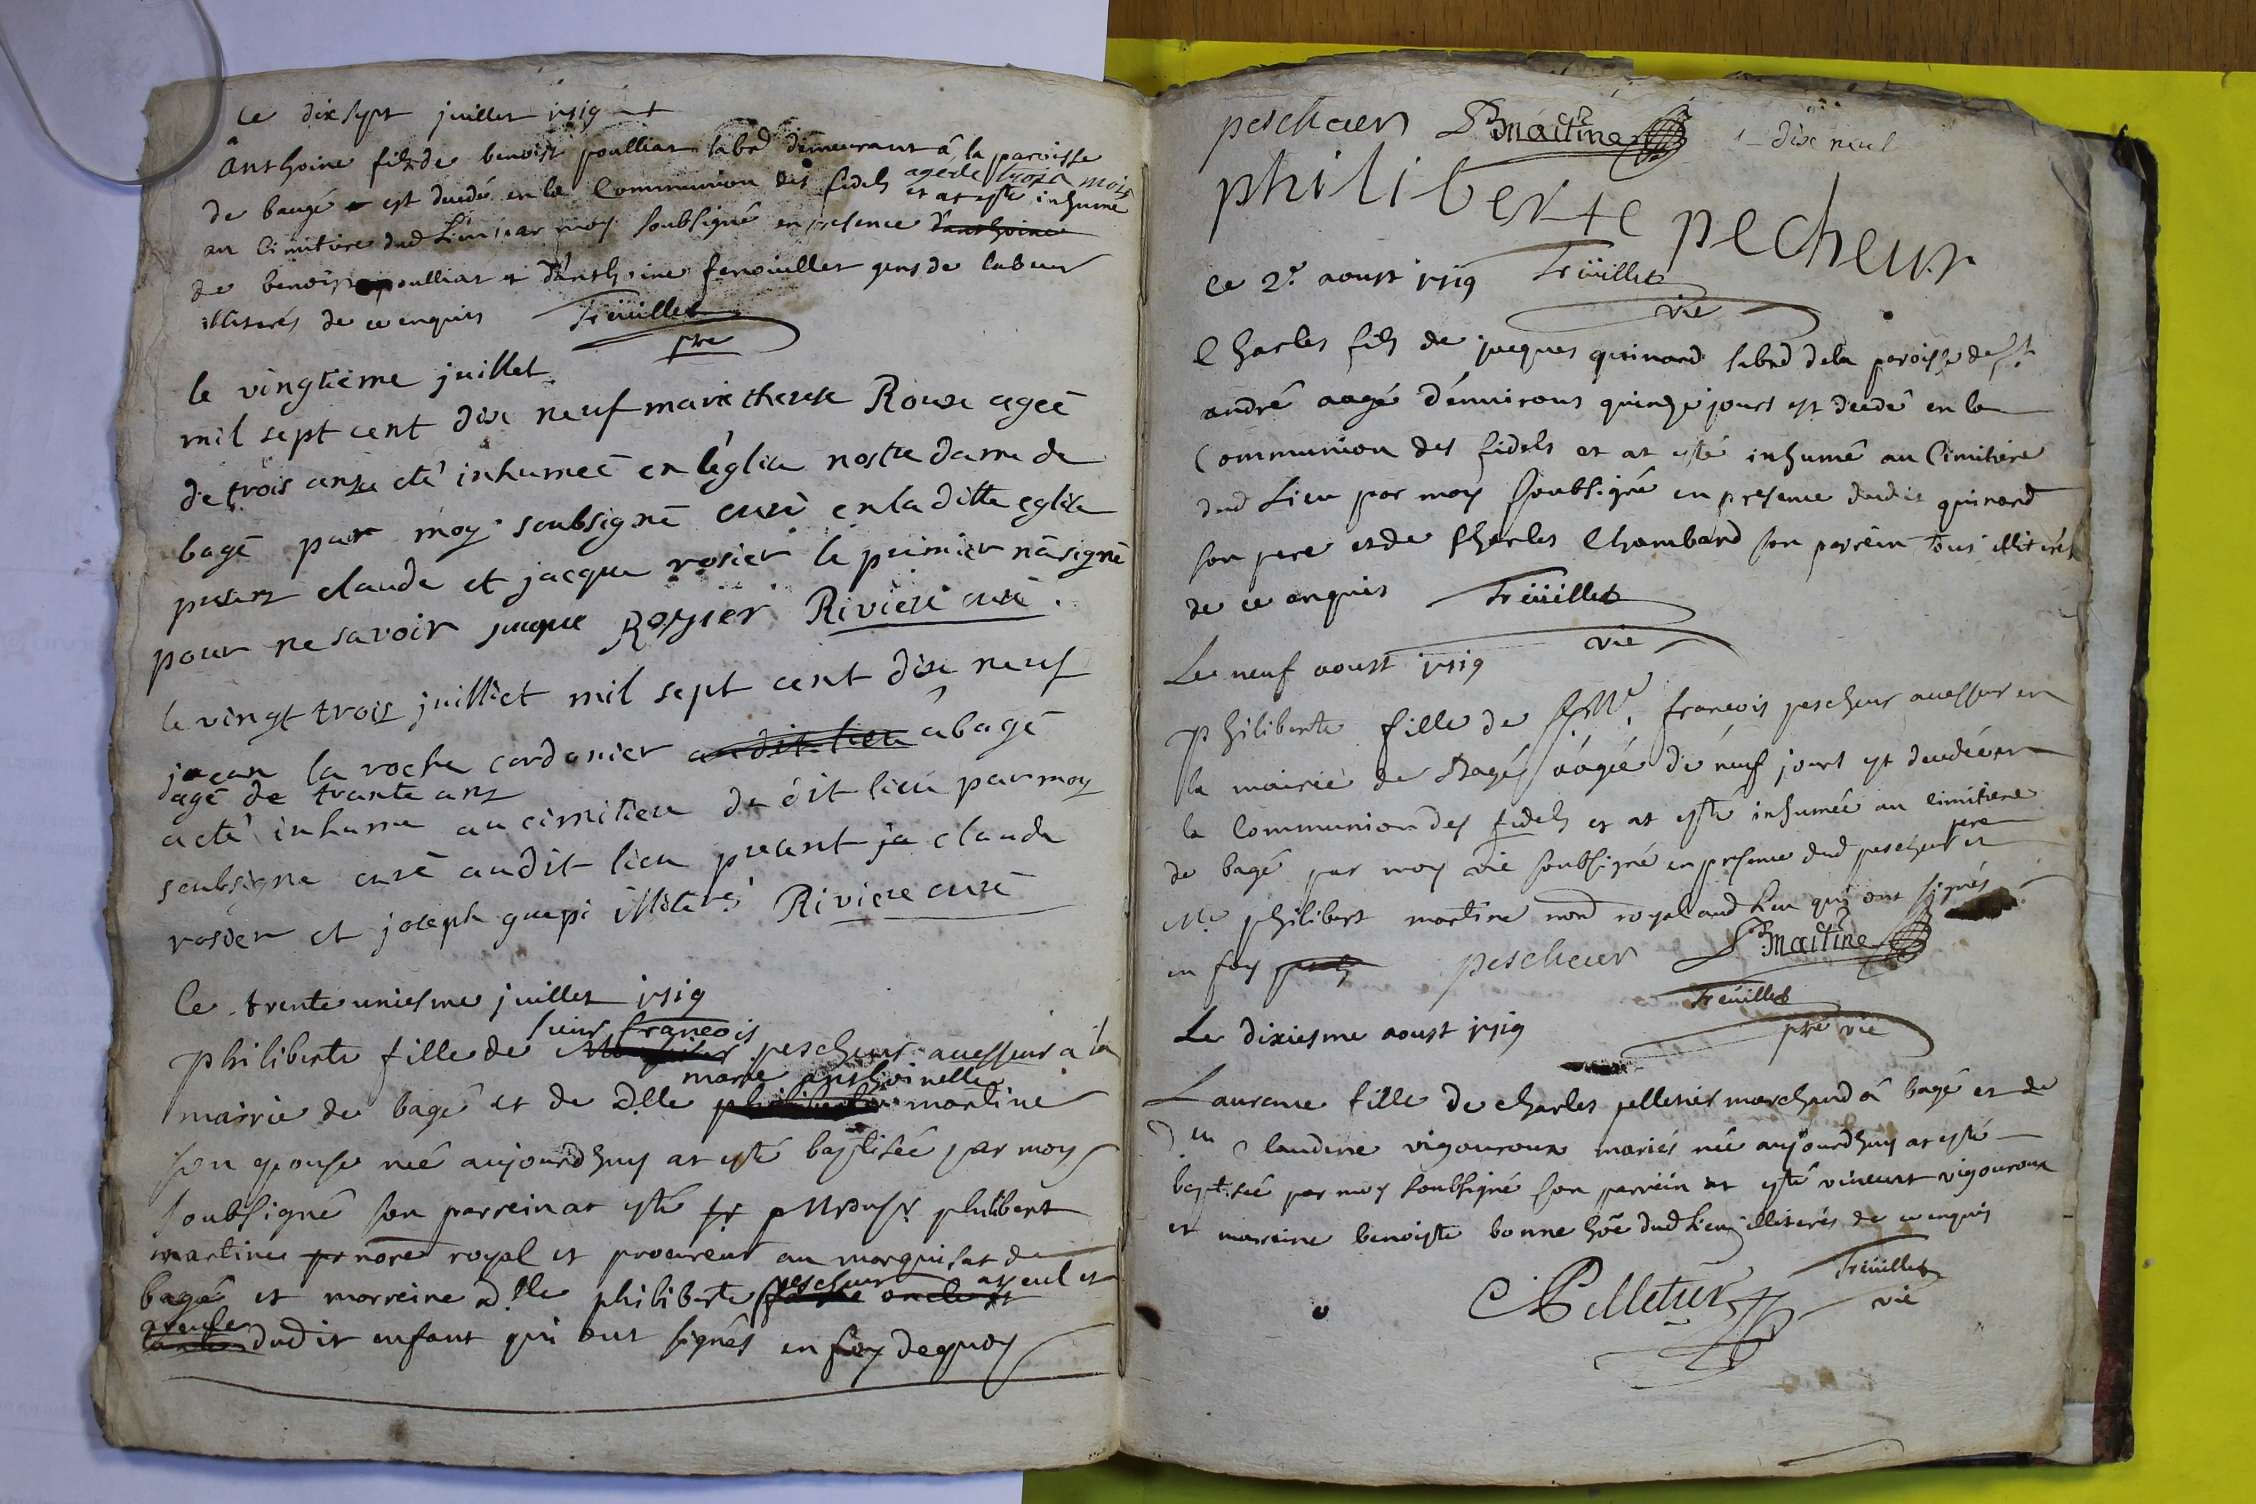 Le dix sept juillet 1719 +
Anthoine fils de benoist poulliat labr demeurant â la paroisse
de baugé est decedé en la Communion des fidels agé de trois mois
et at esté inhumé
au Cimitiere dud Lieu par moy soubsigné en presence d'anthoine
de benoist poulliat et d'anthoine fenouillet gens de labeur
illiterés de ce enquis Treüillet
pre
le vingtieme juillet
mil sept cent dix neuf marie therese Roux ageē
de trois ans a eté inhumeē en l'eglise nostre dame de
bagé par moy soubsigné curé en la ditte eglise
presens claude et jacque rosier le primier n'a signé
pour ne savoir jacque Rozier Riviere curé
le vingt trois juillet mil sept cent dix neuf
jean la roche cordonier audit lieu â bagé
agé de trante ans
a eté inhumé au cimitiere du dit lieu par moy
soubsigne curé audit lieu present ja claude
rosier et joseph guepi illiteré Riviere curé
Le trente uniesme juillet 1719
sieur francois
philiberte fille de pescheur assesseur â la
marie anthoinette
mairie de bagé et de dlle philiberte martine
son epouse neé aujourd'huy at esté baptisée par moy
soubsigné son parrein at esté philibert
martine nore royal et procureur au marquisat de
bagé et marreine dlle philiberte pescheur ayeul et
ayeule
dudit enfant qui ont signés en foy de quoy
pescheur P martine dix neuf
philiberte pecheur
Ce 2e aoust 1719 Treüillet
vic
Charles fils de jacques guinard labrd de la paroisse de st
andré aagé d'environs quinze jours est decedé en la
Communion des fidels et at esté inhumé au Cimitiere
dud Lieu par moy soubsigné en presence dudit guinard
son pere et de Charles Chambard son parrein tous illiterés
de ce enquis Treüillet
vic
Le neuf aoust 1719
philiberte fille de francois pescheur assesseur en
la mairie de Bagé aagée de neuf jours est decedée en
la Communion des fidels et at esté inhumée au Cimitiere
pere
de bagé par moy vic soubsigné en presence dud pescheur et
Me philibert martine nore royal aud Lieu qui ont signés
en foy pescheur P martine
Treüillet
pre vic
Le dixiesme aoust 1719
Laurence fille de charles pelletier marchand â bagé et de
Claudine vigouroux mariés née aujourd'huy at esté
baptisée par moy soubsigné son parrein at esté vincent vigouroux
et marreine benoiste bonne hõe dud Lieu illiterés de ce enquis
C Pelletier Treüillet
vic